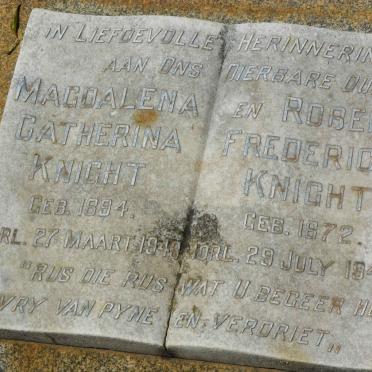 IN LIEFDEVOLLE HERINNERIN
AAN ONS DIERBARE OU
MAGDALENA
CATHERINA
KNIGHT
GEB. 1894.
RL. 27 MAART
"RUS DIE RUS
VRY VAN PYNE
EN ROBE
FREDERIC
KNIGHT
GEB. 1872.
ORL. 29 JULY 19
WAT U BEGEER H
EN VERDRIET"